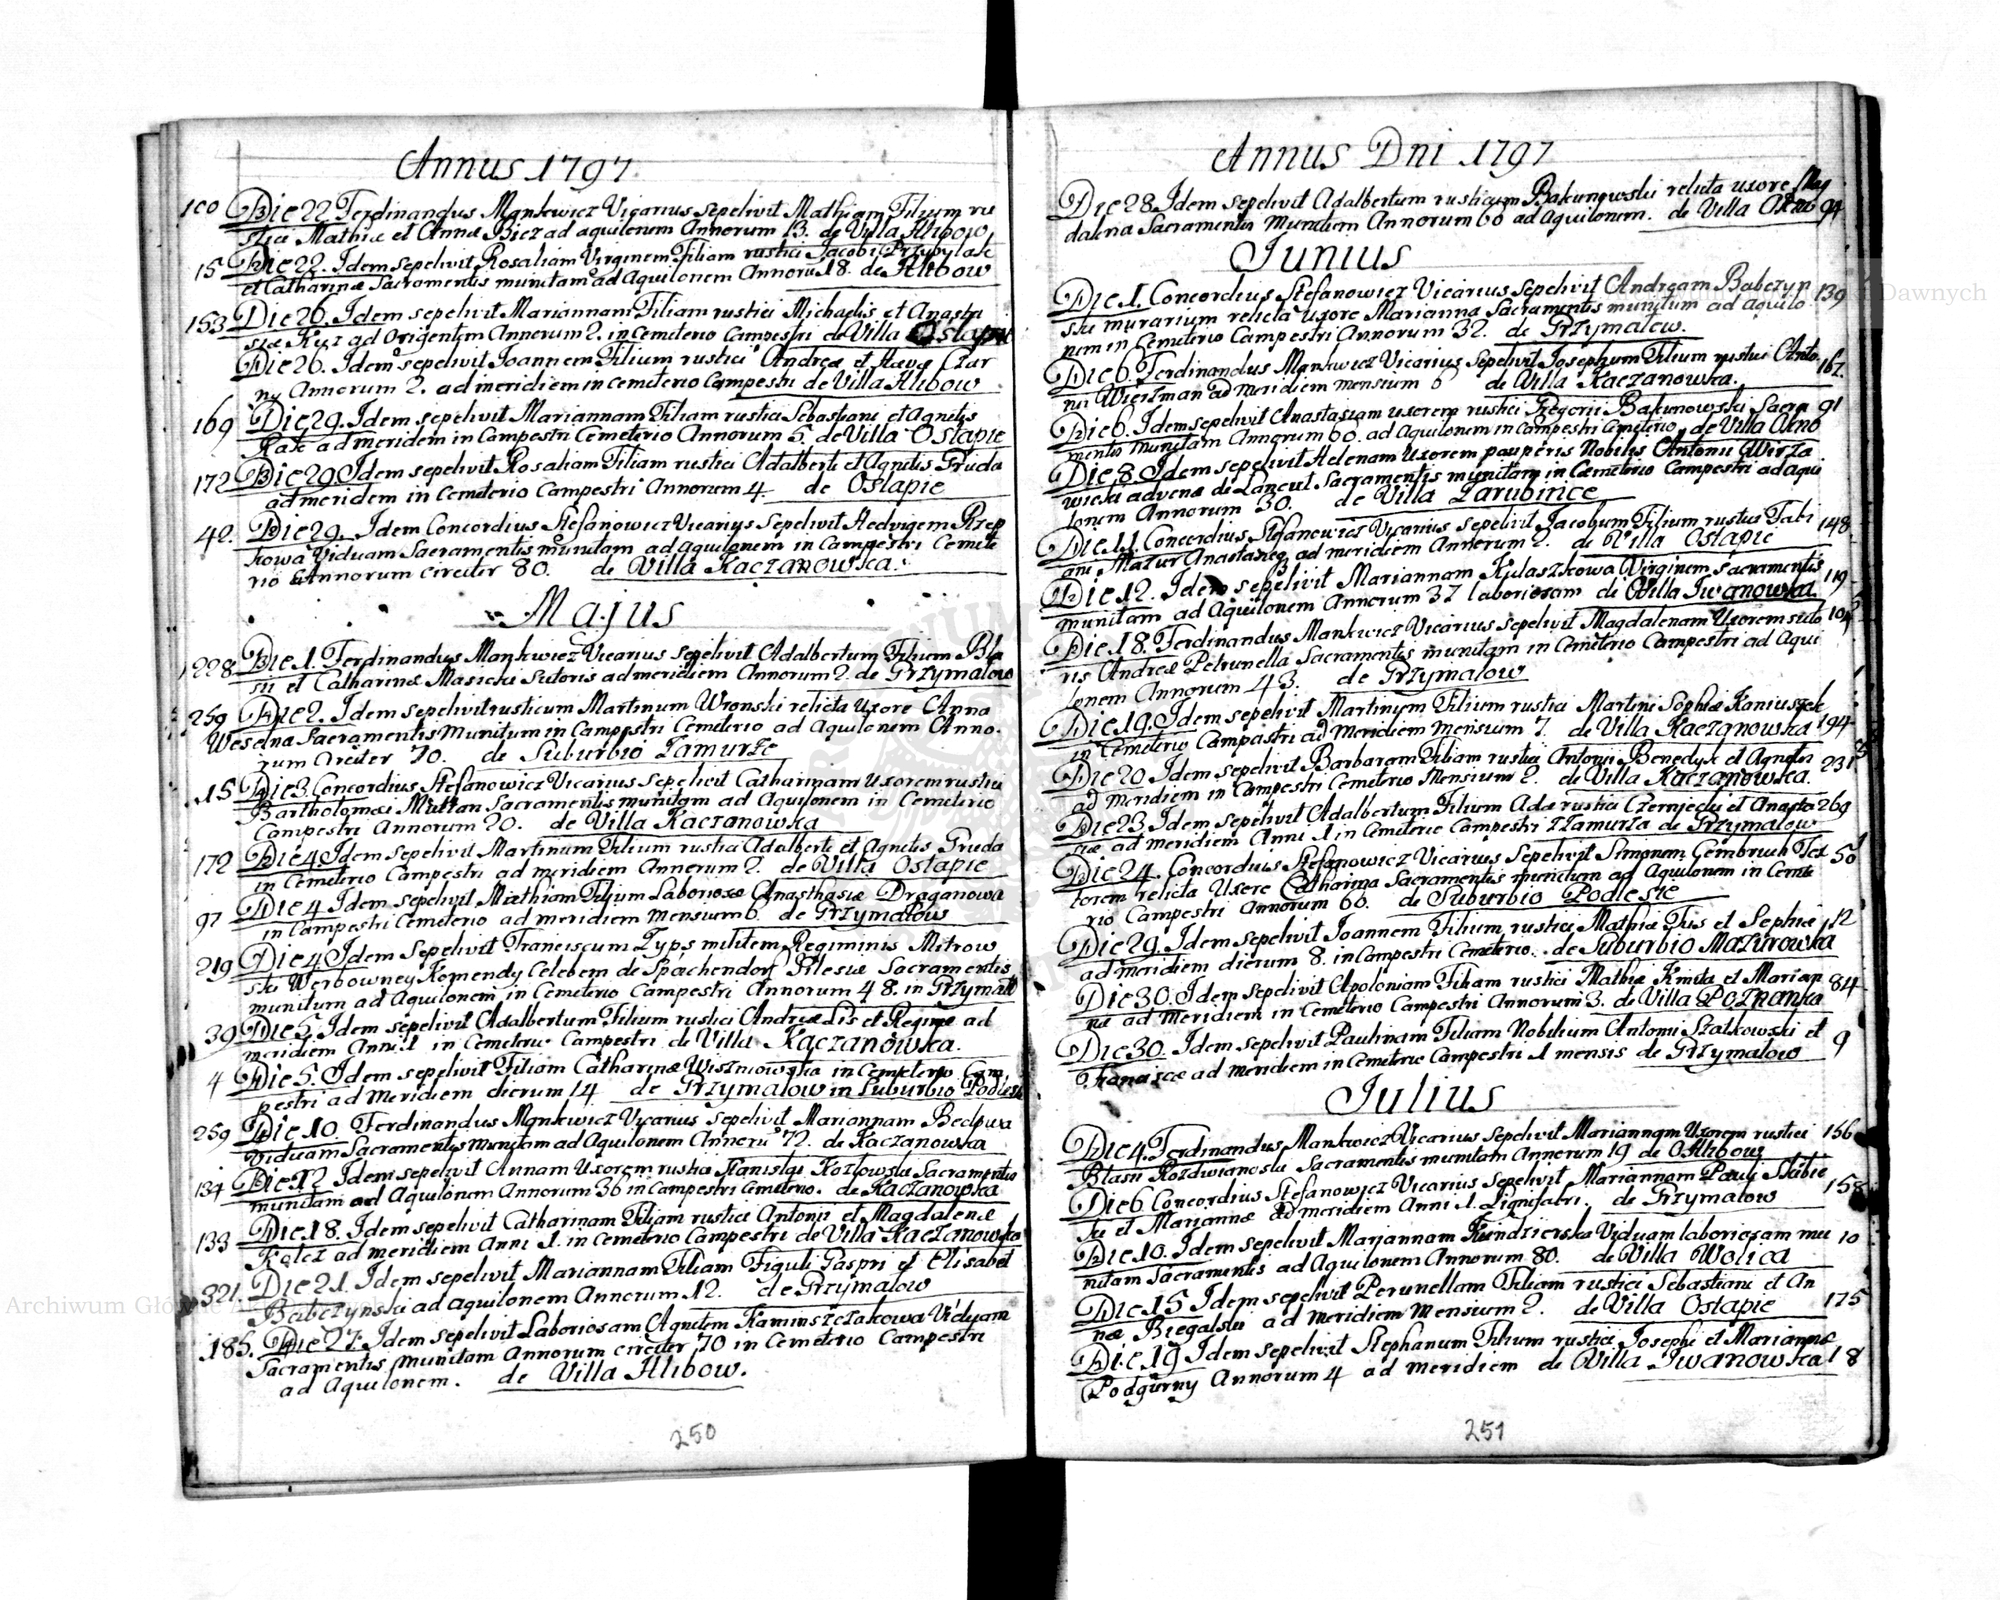 Annus 1797
100 Die 22 Ferdinandus Mankwicz Vicarius Sepelivit Mathiam Filium ru
stici Mathiæ et Annæ Biez ad aquilonem Annorum 13. de Villa Hlibow
15 Die 22. Idem Sepelivit Rosaliam Virginem Filiam rustici Jacobi Przybylak
et Catharinæ Sacramentis munitam ad Aquilonem Annoru 18. de Hlibow
153 Die 26. Idem sepelivit Mariannam Filiam rustici Michaelis et Anasta
siæ Kuz ad Orientem Annorum 2. in Cemeterio Campestri de Villa Ostapie
Die 26. Idem sepelivit Joannem Filium rustici Andreæ et Czar
ny Annorum 2. ad meridiem in cemeterio Campestri de Villa Hlibow
169 Die 29. Idem sepelivit Mariannam Filiam rustici Sebastiani et Agnetis
ad meridem in Campestri Cemeterio Annorum 5. de Villa Ostapie
172 Die 29 Idem sepelivit Rosaliam Filiam rustici Adalberti et Agnetis Gruda
ad meridem in Cemeterio Campestri Annorum 4. de Ostapie
42. Die 29. Idem Concordius Stefanowicz Vicarius Sepelivit Hedvigem Krep
kowa Viduam Sacramentis munitam ad aquilonem in Campestri Cemete
rio Annorum circiter 80. de Villa Kaczanowka.
Majus
228 Die 1. Ferdinandus Mankwicz Vicarius Sepelivit Adalbertum Filium Bla
sii et Catharinæ Masicki Sutoris ad meridiem Annorum 2. de Grzymalow
259 Die 2. Idem Sepelivit rusticum Martinum Wronski relicta Uxore Anna
Wesolna Sacramentis Munitum in Campestri Cemeterio ad Aquilonem Anno.
rum circiter 70. de Suburbio Zamurze
15 Die 3. Concordius Stefanowicz Vicarius Sepelivit Catharinam Uxorem rustici
Bartholomæi Sacramentis munitam ad Aquilonem in Cemeterio
Campestri Annorum 20. de Villa Kaczanowka
172 Die 4 Idem Sepelivit Martinum Filium rustici Adalberti et Agnetis Gruda
in Cemeterio Campestri ad meridiem Annorum 2. de Villa Ostapie
97 Die 4 Idem sepelivit Mathiam Filium Laboriosæ Anasthasiæ Draganowa
in Campestri Cemeterio ad meridiem mensium 6. de Grzymalow
219 Die 4 Idem Sepelivit Franciscum Typs militem Regiminis Mitrow
ski Werbowney Komendy Celebem de Spachendorf Silesiæ Sacramentis
munitum ad Aquilonem in Cemeterio Campestri Annorum 48. in Grzymall
39 Die 5. Idem Sepelivit Adalbertum Filium rustici Andreæ Lis et Reginæ ad
meridiem Anni 1 in Cemeterio Campestri de Villa Kaczanowka.
4 Die 5. Idem sepelivit Filiam Catharinæ Wiszniowska in Cemeterio Cam
pestri ad meridiem dierum 14 de Grzymalow in Suburbio Podlesie
259 Die 10. Ferdinandus Mankwicz Vicarius Sepelivit Mariannam
Viduam Sacramentis munitam ad Aquilonem Annoru 72. de Kaczanowka
134 Die 12 Idem sepelivit Annam Uxorem rustici Stanislai Kozlowski Sacramentis
munitam ad Aquilonem Annorum 36 in Campestri Cemeterio. de Kaczanowka
133 Die 18. Idem sepelivit Catharinam Filiam rustici Antonii et Magdalenæ
Kolcz ad meridiem Anni 1. in Cemeterio Campestri de Villa Kaczanowka
321. Die 21. Idem sepelivit Mariannam Filiam Figuli Gaspri et Elisabet
Babczynski ad aquilonem Annorum 12. de Grzymalow
185. Die 27. Idem sepelivit Laboriosam Agnetem Kaminszczakowa Viduam
Sacramentis munitam Annorum circiter 70 in Cemeterio Campestri
ad Aquilonem. de Villa Hlibow.
250
Annus Dni 1797
Die 28 Idem sepelivit Adalbertum rusticum Bakunowski relicta uxore Mag
dalena Sacramentis Munitum Annorum 60 ad aquilonem. de Villa Okno 94
Junius
Die 1. Concordius Stefanowicz Vicarius Sepelivit Andream Babczyn 139
ski murarium relicta Uxore Marianna Sacramentis munitum ad aquilo
nem in Cemeterio Campestri Annorum 32. de Grzymalow.
Die 6. Ferdinandus Mankwicz Vicarius Sepelivit Josephum Filium rustici Anto. 167.
nii Wiertman ad meridiem mensium 6 de Villa Kaczanowka.
Die 6. Idem sepelivit Anastasiam uxorem rustici Gregorii Bakunowski Sacra 91
mentis munitam Annorum 60. ad Aquilonem in Campestri Cemeterio de Villa Okno
Die 8. Idem sepelivit Helenam Uxorem pauperis Nobilis Antonii Wirza
wicki advenæ de Lancut Sacramentis munitam in Cemeterio Campestri ad aqui
lonem Annorum 30. de Villa Zarubince
Die 11. Concordius Stefanowicz Vicarius Sepelivit Jacobum Filium rustici Fabi 148
ani Mazur Anastasiæq ad meridiem Annorum 2. de Villa Ostapie
Die 12. Idem sepelivit Mariannam Kulaszkowa Virginem sacramentis 119
munitam ad Aquilonem Annorum 37 laboriosam de Villa Iwanowka
Die 18. Ferdinandus Mankwicz Vicarius sepelivit Magdalenam Uxorem suto 104
ris Andreæ Petrunella Sacramentis munitam in Cemeterio Campestri ad Aqui
lonem Annorum 43. de Grzymalow
Die 19. Idem sepelivit Martinum Filium rustici Martini Sophiæ Kaniuszek
in Cemeterio Campastri ad meridiem mensium 7. de Villa Kaczanowka 194
Die 20 Idem sepelivit Barbaram Filiam rustici Antonii Benedyk et Agnetis
ad meridiem in Campestri Cemeterio Mensium 2. de Villa Kaczanowka. 231
Die 23. Idem sepelivit Adalbertum Filium Adæ rustici Czerniecki et Anasta 269
siæ ad meridiem Anni 1 in Cemeterio Campestri Zamurza de Grzymalow
Die 24. Concordius Stefanowicz Vicarius Sepelivit Simonem Gembruch Tex 50
torem relicta Uxore Catharina Sacramentis munitum ad Aquilonem in Ceme
rio Campestri Annorum 60. de Suburbio Podlesie
Die 29. Idem sepelivit Joannem Filium rustici Mathiæ Fus et Sophiæ 12
ad meridiem dierum 8. in Campestri Cemeterio. de Suburbio Mazurowka
Die 30. Idem sepelivit Apoloniam Filiam rustici Mathiæ Kmita et Marian 84
næ ad meridiem in Cemeterio Campestri Annorum 3. de Villa Poznanka
Die 30. Idem sepelivit Paulinam Filiam Nobilium Antonii Szatkowski et 9
Franciscæ ad meridiem in Cemeterio Campestri 1 mensis de Grzymalow
Julius
Die 4. Ferdinandus Mankwicz Vicarius Sepelivit Mariannam Uxorem rustici 156
Blasii Rozdwianoski Sacramentis munitam Annorum 19 de Hlibow
Die 6 Concordius Stefanowicz Vicarius Sepelivit Mariannam Pauli Skibic 158
ki et Mariannæ ad meridiem Anni 1. Lignifabri. de Grzymalow
Die 10. Idem sepelivit Mariannam Kundzierska Viduam laboriosam mu 10
nitam Sacramentis ad Aquilonem Annorum 80. de Villa Wolica
Die 15 Idem sepelivit Perunellam Filiam rustici Sebastiani et An
næ Biegalski ad meridiem Mensium 2. de Villa Ostapie 175
Die 19 Idem sepelivit Stephanum Filium rustici Josephi et Mariannæ
Podgurny Annorum 4 ad meridiem de Villa Iwanowka 18
251